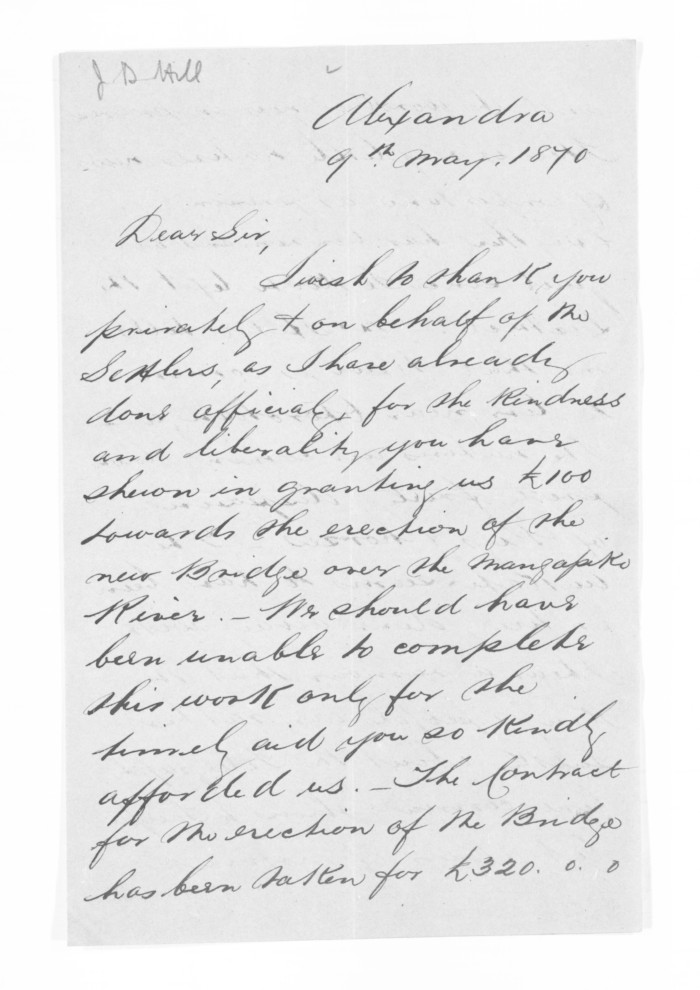 J B Hill
Alexandra
9th May. 1870
Dear Sir,
I wish to thank you
privately & on behalf of the
Settlers, as I have already
done officialy, for the kindness
and liberality you have
shewn in granting us £100
towards the erection of the
new Bridge over the Mangapiko
River. — We should have
been unable to complete
this work only for the
timely aid you so kindly
afforded us. — The Contract
for the erection of the Bridge
has been taken for £320. 0. 0